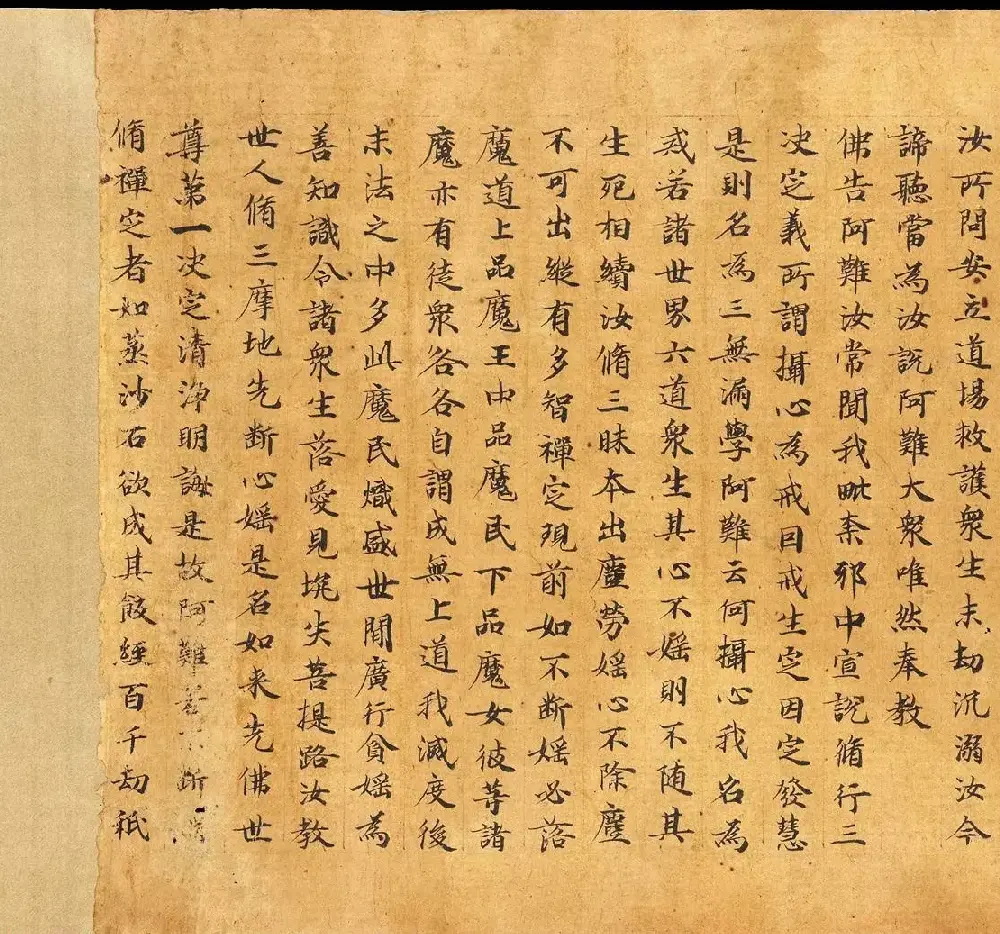 汝所問安立道場救護衆生末劫沉溺汝今
諦聽當為汝説阿難大衆唯然奉教
佛告阿難汝常聞我毗柰邪中宣説脩行三
决定義所謂攝心為戒因戒生定因定發慧
是則名為三無漏學阿難云何攝心我名為
戒若諸世界六道衆生其心不婬則不随其
生死相續汝脩三昧本出塵勞婬心不除塵
不可出縱有多智禪定現前如不断婬必落
魔道上品魔王中品魔民下品魔女彼等諸
魔亦有徒衆各各自謂成無上道我滅度後
末法之中多此魔民熾盛世間廣行貪婬為
善知識令諸衆生落愛見坑失菩提路汝教
世人脩三摩地先断心婬是名如来先佛世
尊第一决定清淨明誨是故阿難若不断
脩禪定者如蒸沙石欲成其飯經百千劫秖